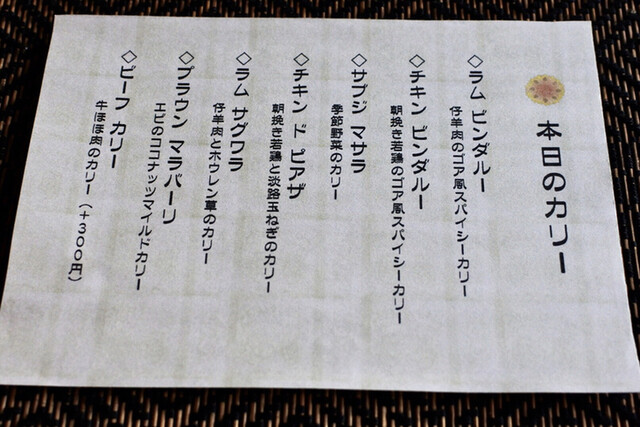 本日のカリー
◇ラム ビンダルー
仔羊肉のゴア風スパイシーカリー
◇チキン ビンダルー
朝挽き若鶏のゴア風スパイシーカリー
◇サブジ マサラ
季節野菜のカリー
◇チキン ド ピアザ
朝挽き若鶏と淡路玉ねぎのカリー
◇ラム サグワラ
仔羊肉とホウレン草のカリー
◇プラウン マラバーリ
エビのココナッツマイルドカリー
◇ビーフ カリー
牛ほほ肉のカリー（+300円）